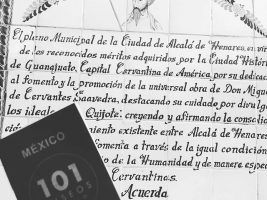 El pleno Municipal de la Ciudad de Alcalá de Henares, en vir
de los reconocidos méritos adquiridos por la Ciudad Histór
de Guanajuato, Capital Cervantina de América, por su dedicac
al fomento y la promoción de la universal obra de Don Migu
de Cervantes Saavedra, destacando su cuidado por divulga
los ideale Quijote; creyendo y afirmando la consolid
ció miento existente entre Alcalá de Henare
fomenta a través de la igual condición
o de la Humanidad y de manera espec
Cervantinos.
Acuerda
MÉXICO
101